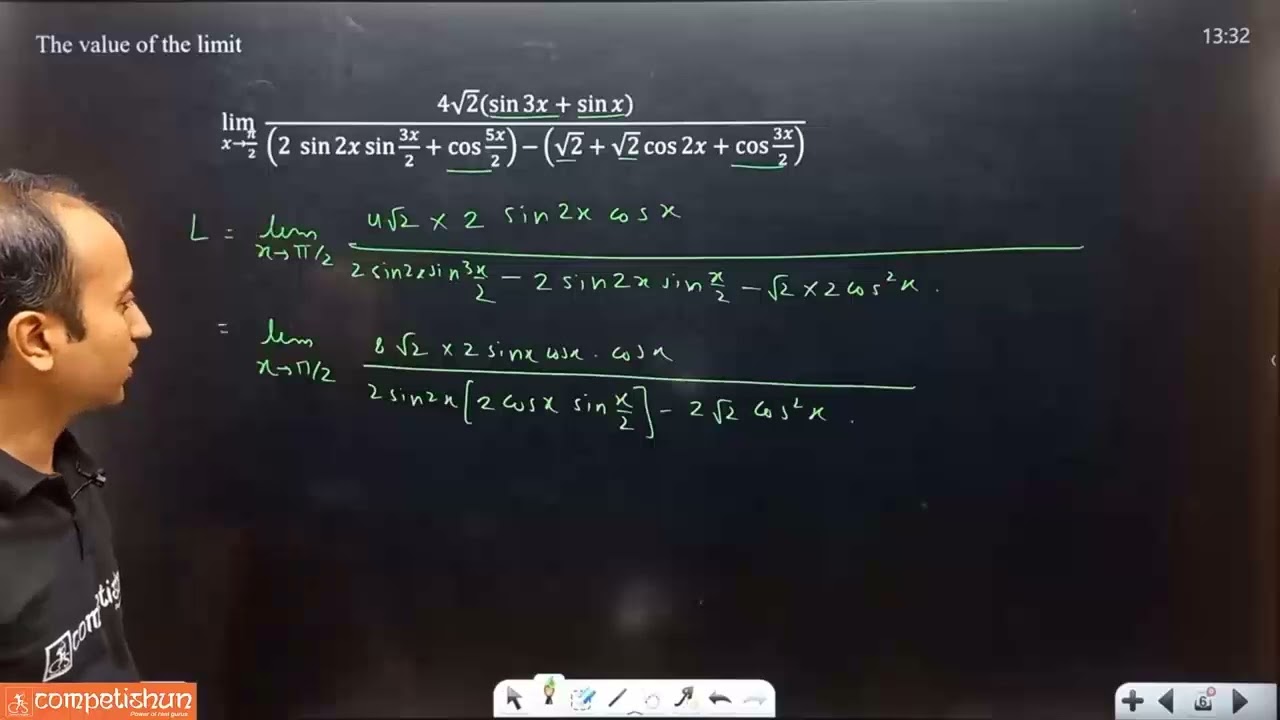 The value of the limit
13:32
lim x→π/2 4√2(sin 3x + sin x) / (2 sin 2x sin 3x/2 + cos 5x/2) − (√2 + √2 cos 2x + cos 3x/2)
L = lim x→π/2 4√2 × 2 sin2x cosx / 2 sin2x sin 3x/2 − 2 sin2x sin x/2 − √2 × 2 cos²x .
= lim x→π/2 8√2 × 2 sinx cosx . cosx / 2 sin2x [2 cosx sin x/2] − 2√2 cos²x .
competishun
Power of real gurus
6